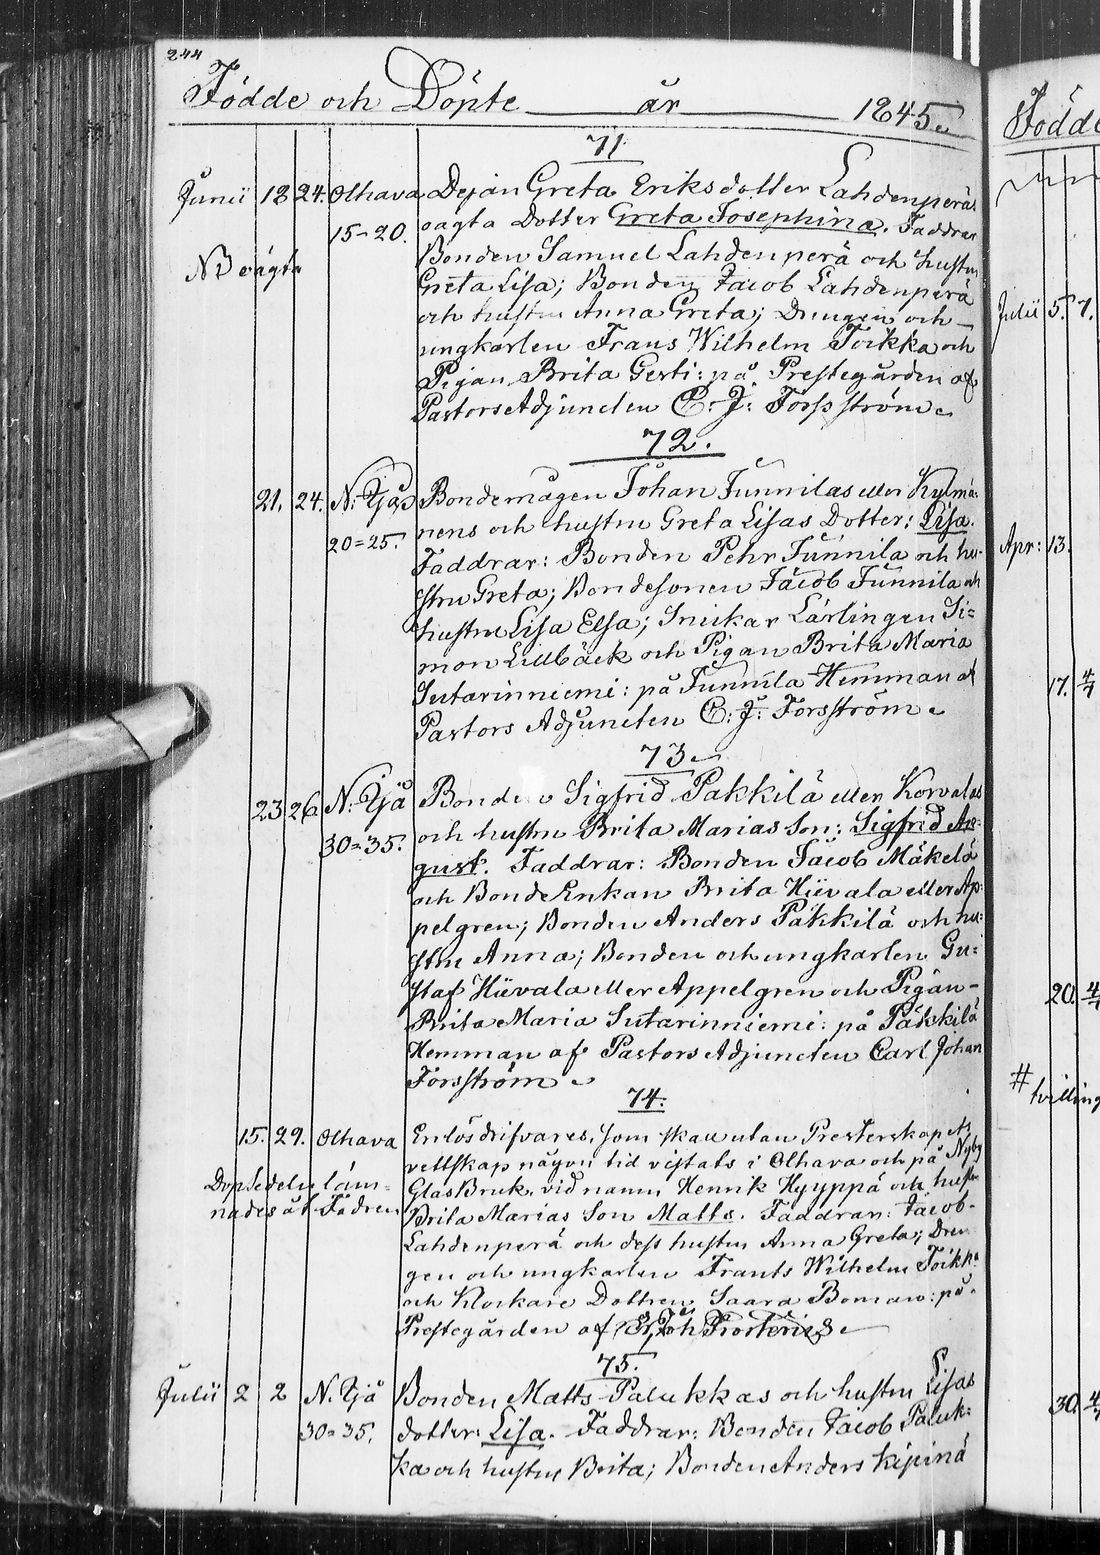 244
Födde och Döpte år 1845.
71
Junii 18 24. Olhava Pejan Greta Eriksdotter Lahdenperäs
15-20. oägta Dotter Greta Josephina. Faddrar
NB oägta Bonden Samuel Lahdenperä och hustru
Greta Lisa; Bonden Jacob Lahdenperä
och hustru Anna Greta; Drengen och
ungkarlen Frans Wilhelm Toikka och
Pigan Brita Gerti: på Prestegården af
Pastors Adjuncten C. J. Forsström.
72.
21. 24. N: Ijå Bondemågen Johan Junnilas eller Kylmä-
20=25. nens och hustru Greta Lisas Dotter: Lisa.
Faddrar: Bonden Pehr Junnila och hu-
stru Greta; Bondesonen Jacob Junnila och
hustru Lisa Elsa; Snickar Lärlingen Si=
mon Lillbäck och Pigan Brita Maria
Sutarinniemi: på Junnila Hemman af
Pastors Adjuncten C: J: Forsström.
73.
23 26 N: Ijå Bonden Sigfrid Pakkilä eller Korvalas
30=35. och hustru Brita Marias Son: Sigfrid Au-
gust. Faddrar: Bonden Jacob Mäkelä
och BondeEnkan Brita Hiivala eller Ap-
pelgren; Bonden Anders Pakkilä och hu-
stru Anna; Bonden och ungkarlen Gu-
staf Hiivala eller Appelgren och Pigan
Brita Maria Sutarinniemi: på Pakkilä
Hemman af Pastors Adjuncten Carl Johan
Forsström.
74.
15. 29. Olhava En lösdrifvares, som skall utan Presterskapets
vettskap någon tid vistats i Olhava och på Nyby
Dopsedeln läm- GlasBruk, vid namn Henrik Hyyppä och hustru
nades åt Fadren Brita Marias Son Matts. Faddrar: Jacob
Lahdenperä och dess hustru Anna Greta; Dren
gen och ungkarlen Frants Wilhelm Toikka
och Klockare Dottren Saara Boman: på
Prestegården af Joh Frosterus
75.
Julii 2 2 N. Ijå Bonden Matts Palukkas och hustru Lisas
30=35. dotter: Lisa. Faddrar: Bonden Jacob Paluk-
ka och hustru Brita; Bonden Anders Kipinä
Födde
Julii 5. 7.
Apr: 13.
17. 4/7
20. 4/7
# tvilling
30. 4/7